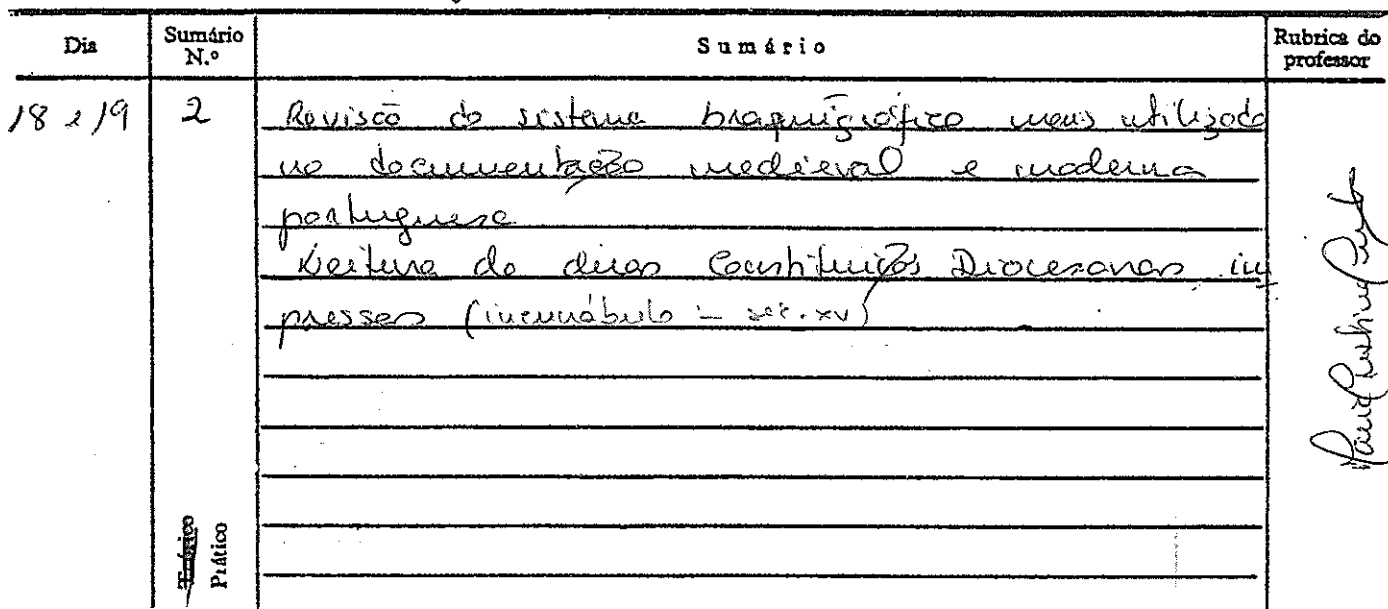 Dia
Sumário N.º
Sumário
Rubrica do professor
18 e 19
2
Revisão do sistema braquigráfico mais utilizado
na documentação medieval e moderna
portuguesa
Leitura de duas Constituições Diocesanas im
pressas (incunábulo - séc. XV)
Teórico
Prático